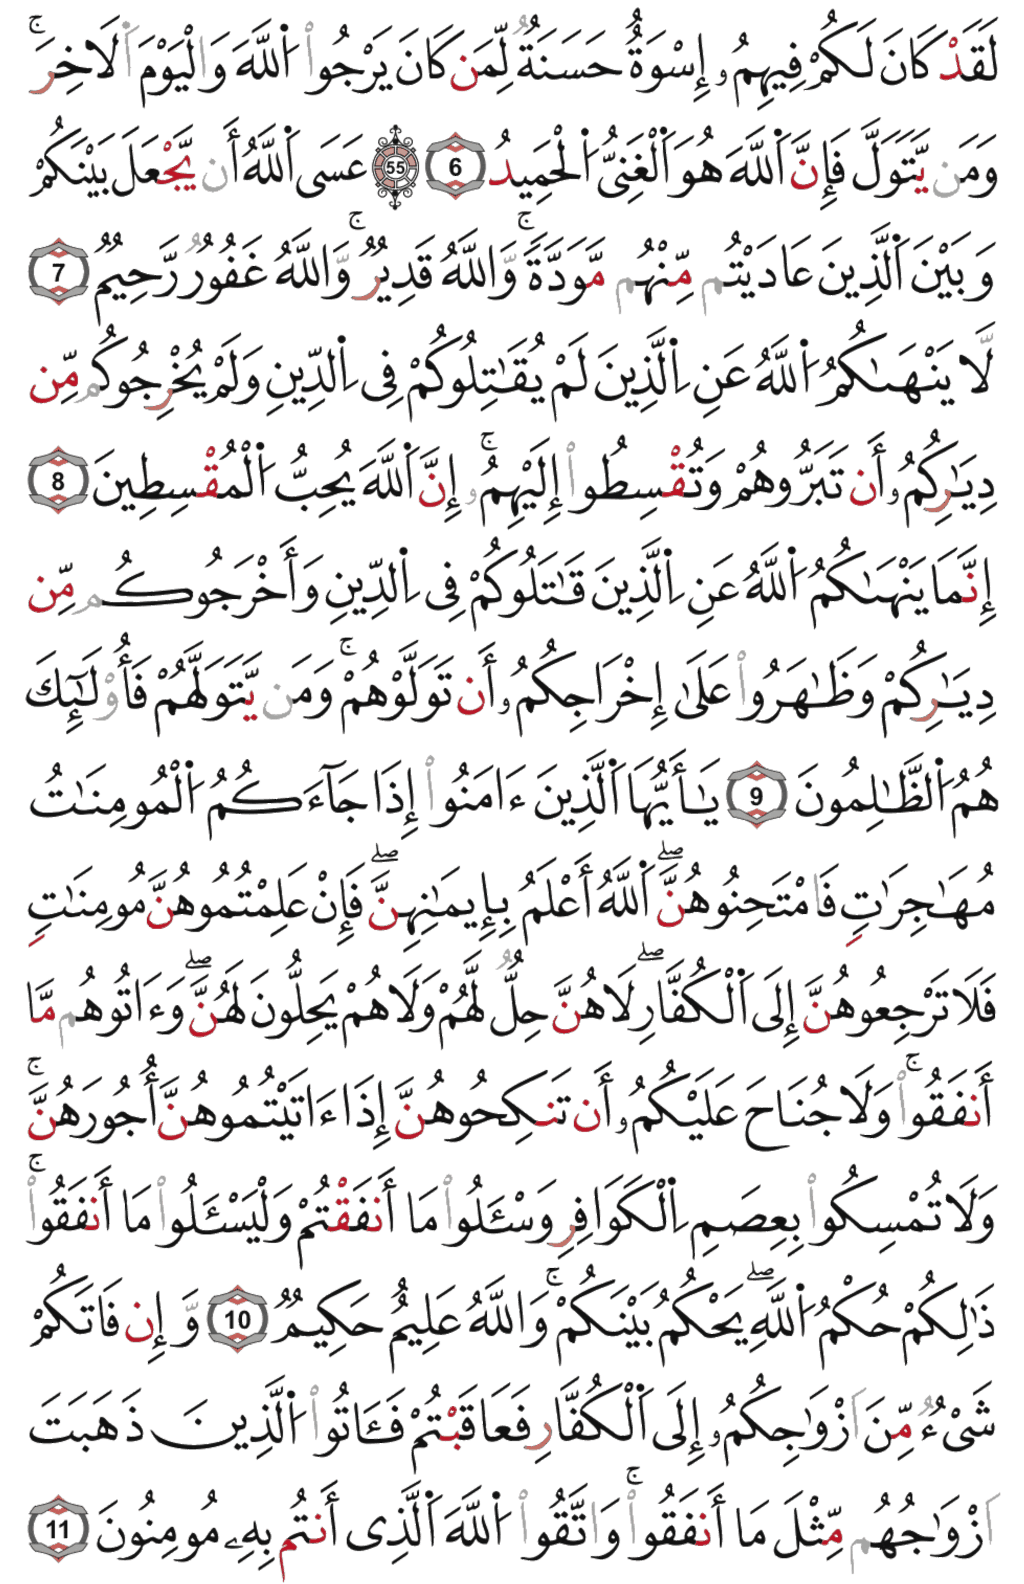 لَقَدْ كَانَ لَكُمْ فِيهِمُۥ إِسْوَةٌ حَسَنَةٌ لِّمَن كَانَ يَرْجُوا۟ اُ۬للَّهَ وَالْيَوْمَ اَ۬لَاخِرَۚ
وَمَن يَّتَوَلَّ فَإِنَّ اَ۬للَّهَ هُوَ اَ۬لْغَنِىُّ اُ۬لْحَمِيدُ 6 55 عَسَى اَ۬للَّهُ أَن يَّجْعَلَ بَيْنَكُمْ
وَبَيْنَ اَ۬لَّذِينَ عَادَيْتُم مِّنْهُم مَّوَدَّةًۚ وَّاللَّهُ قَدِيرٌۚ وَّاللَّهُ غَفُورٌ رَّحِيمٌ 7
لَّا يَنْهَىٰكُمُ اُ۬للَّهُ عَنِ اِ۬لَّذِينَ لَمْ يُقَٰتِلُوكُمْ فِى اِ۬لدِّينِ وَلَمْ يُخْرِجُوكُم مِّن
دِيَٰرِكُمُۥ أَن تَبَرُّوهُمْ وَتُقْسِطُوا۟ إِلَيْهِمُۥۚ إِنَّ اَ۬للَّهَ يُحِبُّ اُ۬لْمُقْسِطِينَ 8
إِنَّمَا يَنْهَىٰكُمُ اُ۬للَّهُ عَنِ اِ۬لَّذِينَ قَٰتَلُوكُمْ فِى اِ۬لدِّينِ وَأَخْرَجُوكُم مِّن
دِيَٰرِكُمْ وَظَٰهَرُوا۟ عَلَىٰ إِخْرَاجِكُمُۥ أَن تَوَلَّوْهُمْۚ وَمَن يَّتَوَلَّهُمْ فَأُو۟لَٰٓئِكَ
هُمُ اُ۬لظَّٰلِمُونَ 9 يَٰأَيُّهَا اَ۬لَّذِينَ ءَامَنُوا۟ إِذَا جَآءَكُمُ اُ۬لْمُومِنَٰتُ
مُهَٰجِرَٰتٍ فَامْتَحِنُوهُنَّۖ اَ۬للَّهُ أَعْلَمُ بِإِيمَٰنِهِنَّۖ فَإِنْ عَلِمْتُمُوهُنَّ مُومِنَٰتٍ
فَلَا تَرْجِعُوهُنَّ إِلَى اَ۬لْكُفَّارِۖ لَا هُنَّ حِلٌّ لَّهُمْ وَلَا هُمْ يَحِلُّونَ لَهُنَّۖ وَءَاتُوهُم مَّا
أَنفَقُوا۟ۚ وَلَا جُنَاحَ عَلَيْكُمُۥ أَن تَنكِحُوهُنَّ إِذَا ءَاتَيْتُمُوهُنَّ أُجُورَهُنَّۚ
وَلَا تُمْسِكُوا۟ بِعِصَمِ اِ۬لْكَوَافِرِ وَسْـَٔلُوا۟ مَا أَنفَقْتُمْ وَلْيَسْـَٔلُوا۟ مَا أَنفَقُوا۟ۚ
ذَٰلِكُمْ حُكْمُ اُ۬للَّهِۖ يَحْكُمُ بَيْنَكُمْۚ وَاللَّهُ عَلِيمٌ حَكِيمٌ 10 وَّإِن فَاتَكُمْ
شَىْءٌ مِّنَ اَزْوَٰجِكُمُۥ إِلَى اَ۬لْكُفَّارِ فَعَاقَبْتُمْ فَـَٔاتُوا۟ اُ۬لَّذِينَ ذَهَبَتَ
اَزْوَٰجُهُم مِّثْلَ مَا أَنفَقُوا۟ۚ وَاتَّقُوا۟ اُ۬للَّهَ اَ۬لَّذِى أَنتُم بِهِۦ مُومِنُونَ 11